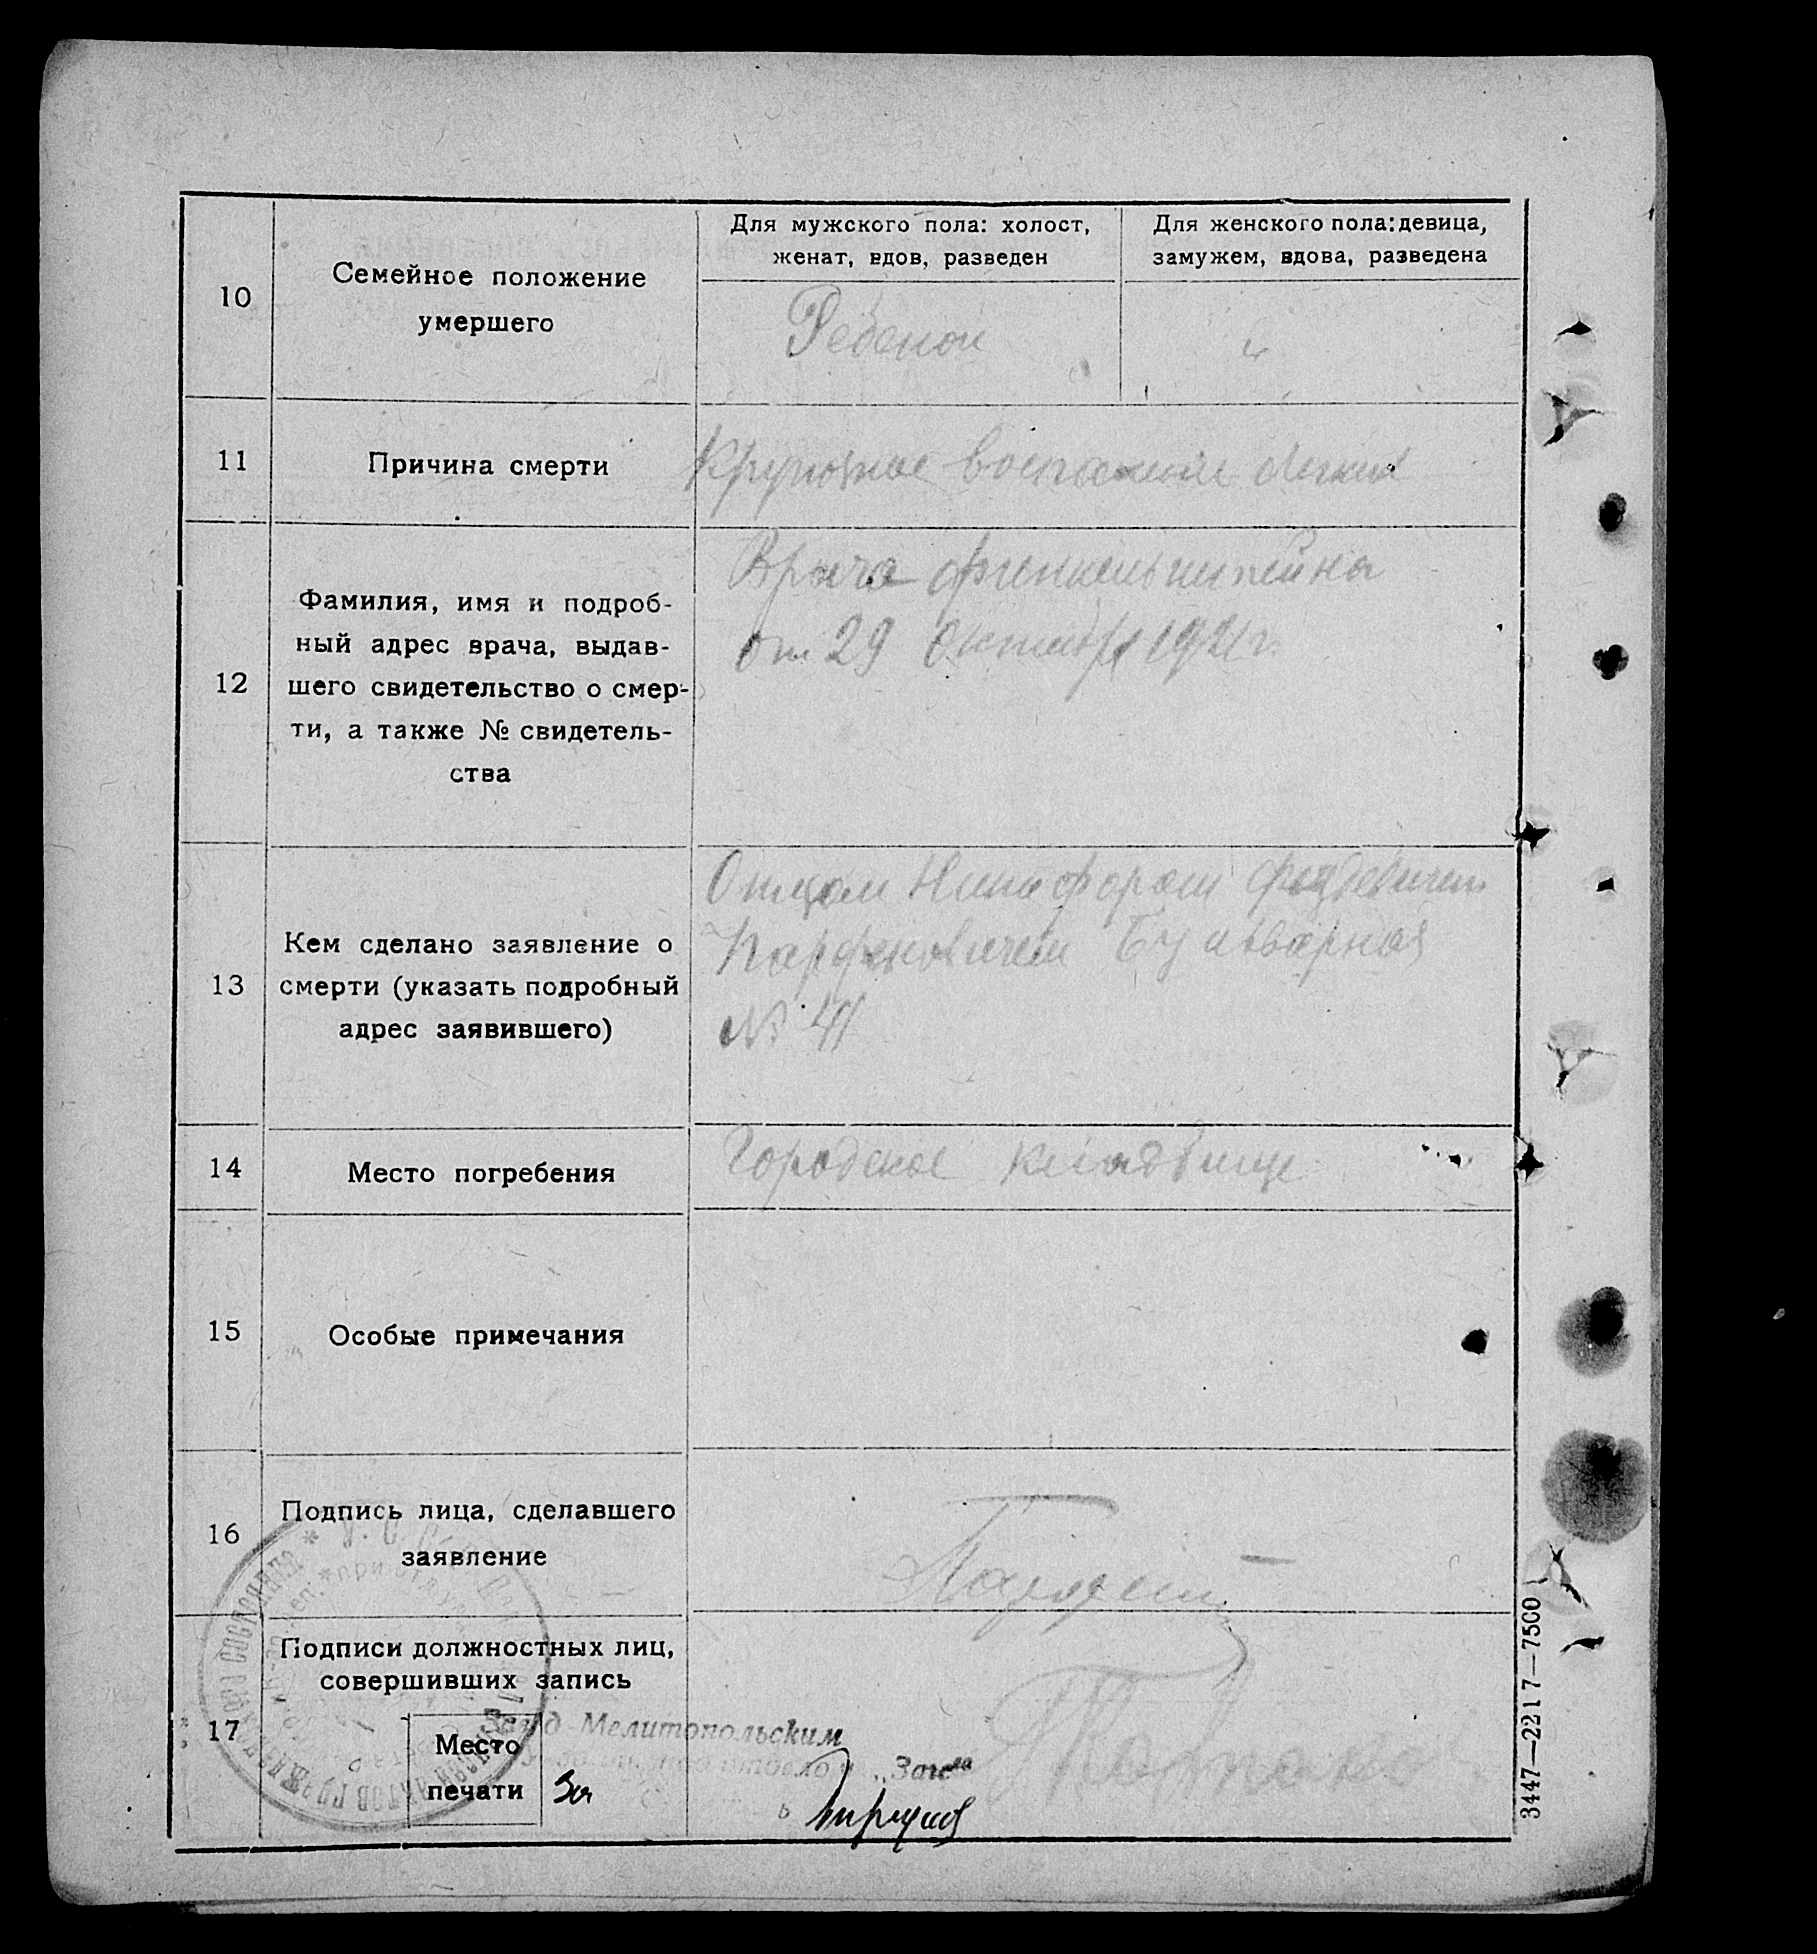 10
Семейное положение
умершего
Для мужского пола: холост,
женат, вдов, разведен
Для женского пола: девица,
замужем, вдова, разведена
Ребенок
"
11
Причина смерти
Крупозное воспаление легких
12
Фамилия, имя и подроб-
ный адрес врача, выдав-
шего свидетельство о смер-
ти, а также № свидетель-
ства
Врача Финкельштейна
от 29 октября 1921 г.
13
Кем сделано заявление о
смерти (указать подробный
адрес заявившего)
Отцом Никифором
Парфеновичем Бульварная
№ 41
14
Место погребения
Городское кладбище
15
Особые примечания
16
Подпись лица, сделавшего
заявление
17
Подписи должностных лиц,
совершивших запись
Место
печати
За
Зав'д Мелитопольским
"Загс"
3447—2217—7500